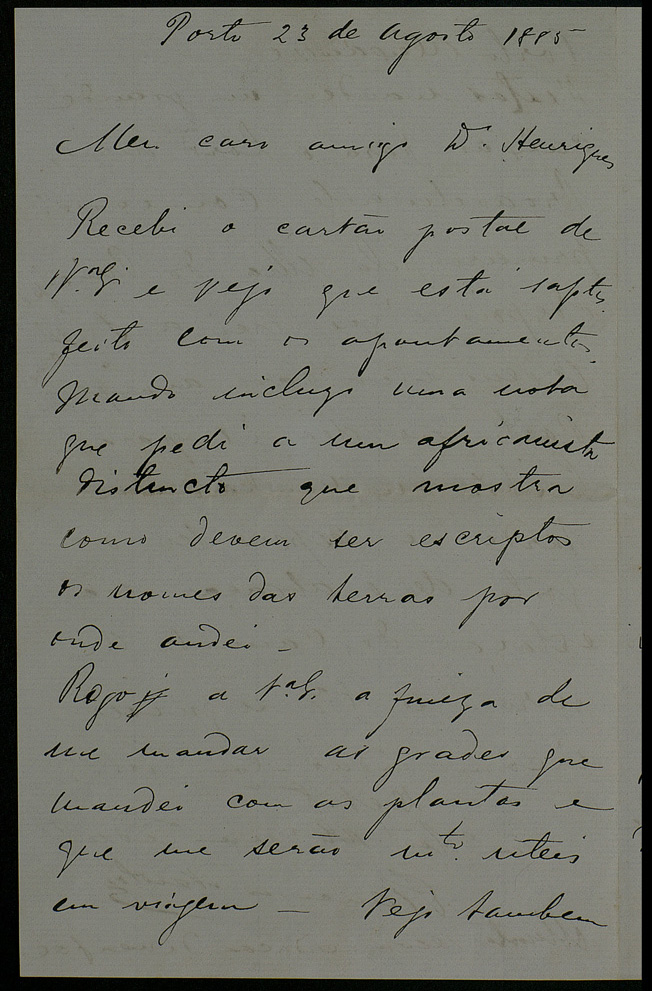 Porto 23 de Agosto 1885
Meu caro amigo Dr. Henriques
Recebi o cartão postal de
V.ª S.ª e vejo que está satis
feito com os apontamentos.
Mando incluso uma nota
que pedi a um africanista
distincto que mostra
como devem ser escriptos
os nomes das terras por
onde andei –
Rogo a V.ª S.ª a fineza de
me mandar as grades que
mandei com as plantas e
que me serão mto. uteis
em viagem – Vejo tambem